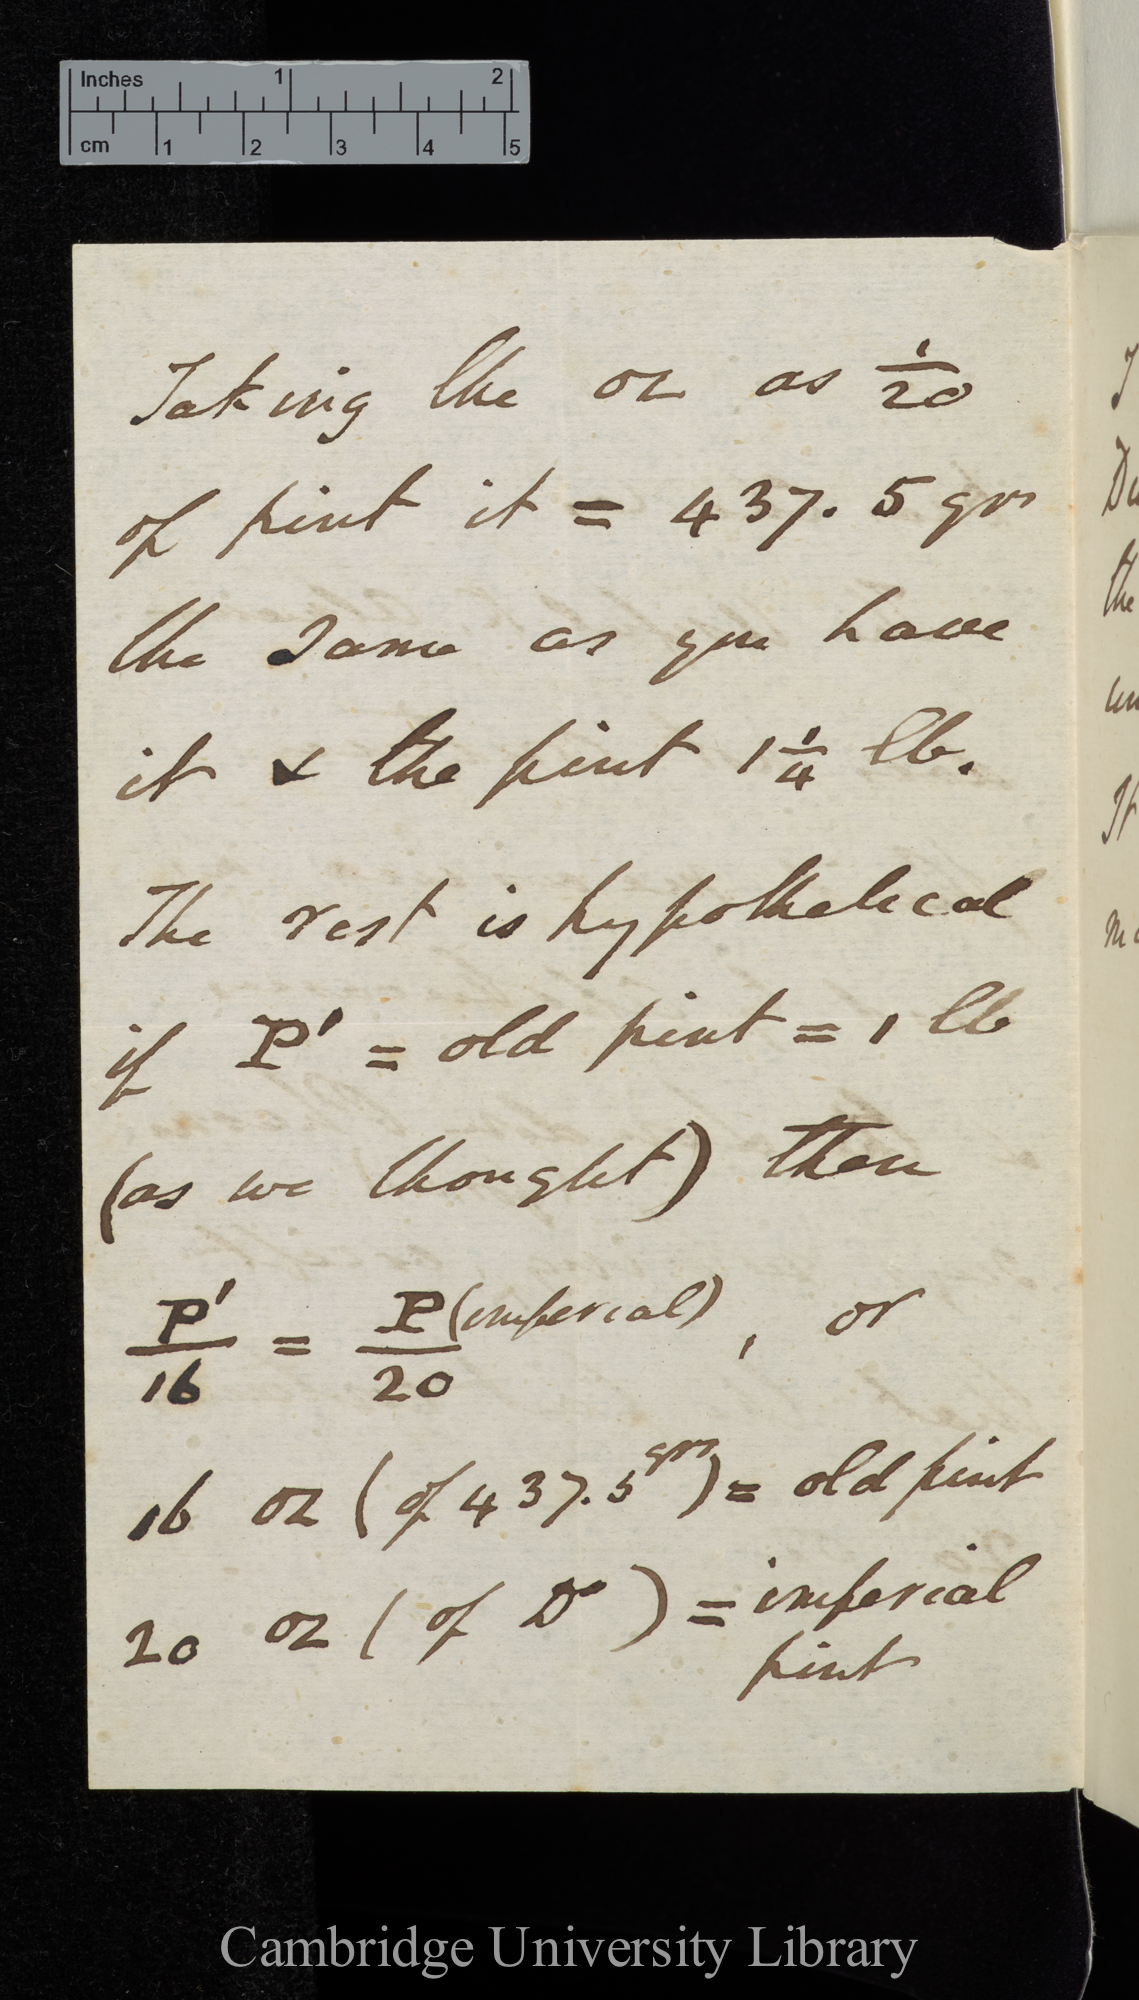 Inches 1 2
cm 1 2 3 4 5
Taking the oz as 1/20
of pint it = 437.5 grs
the same as you have
it & the pint 1 1/4 lb.
The rest is hypothetical
if P' = old pint = 1 lb
(as we thought) then
P'/16 = P(imperial)/20, or
16 oz (of 437.5 grs) = old pint
20 oz (of Do) = imperial
pint
the
Cambridge University Library